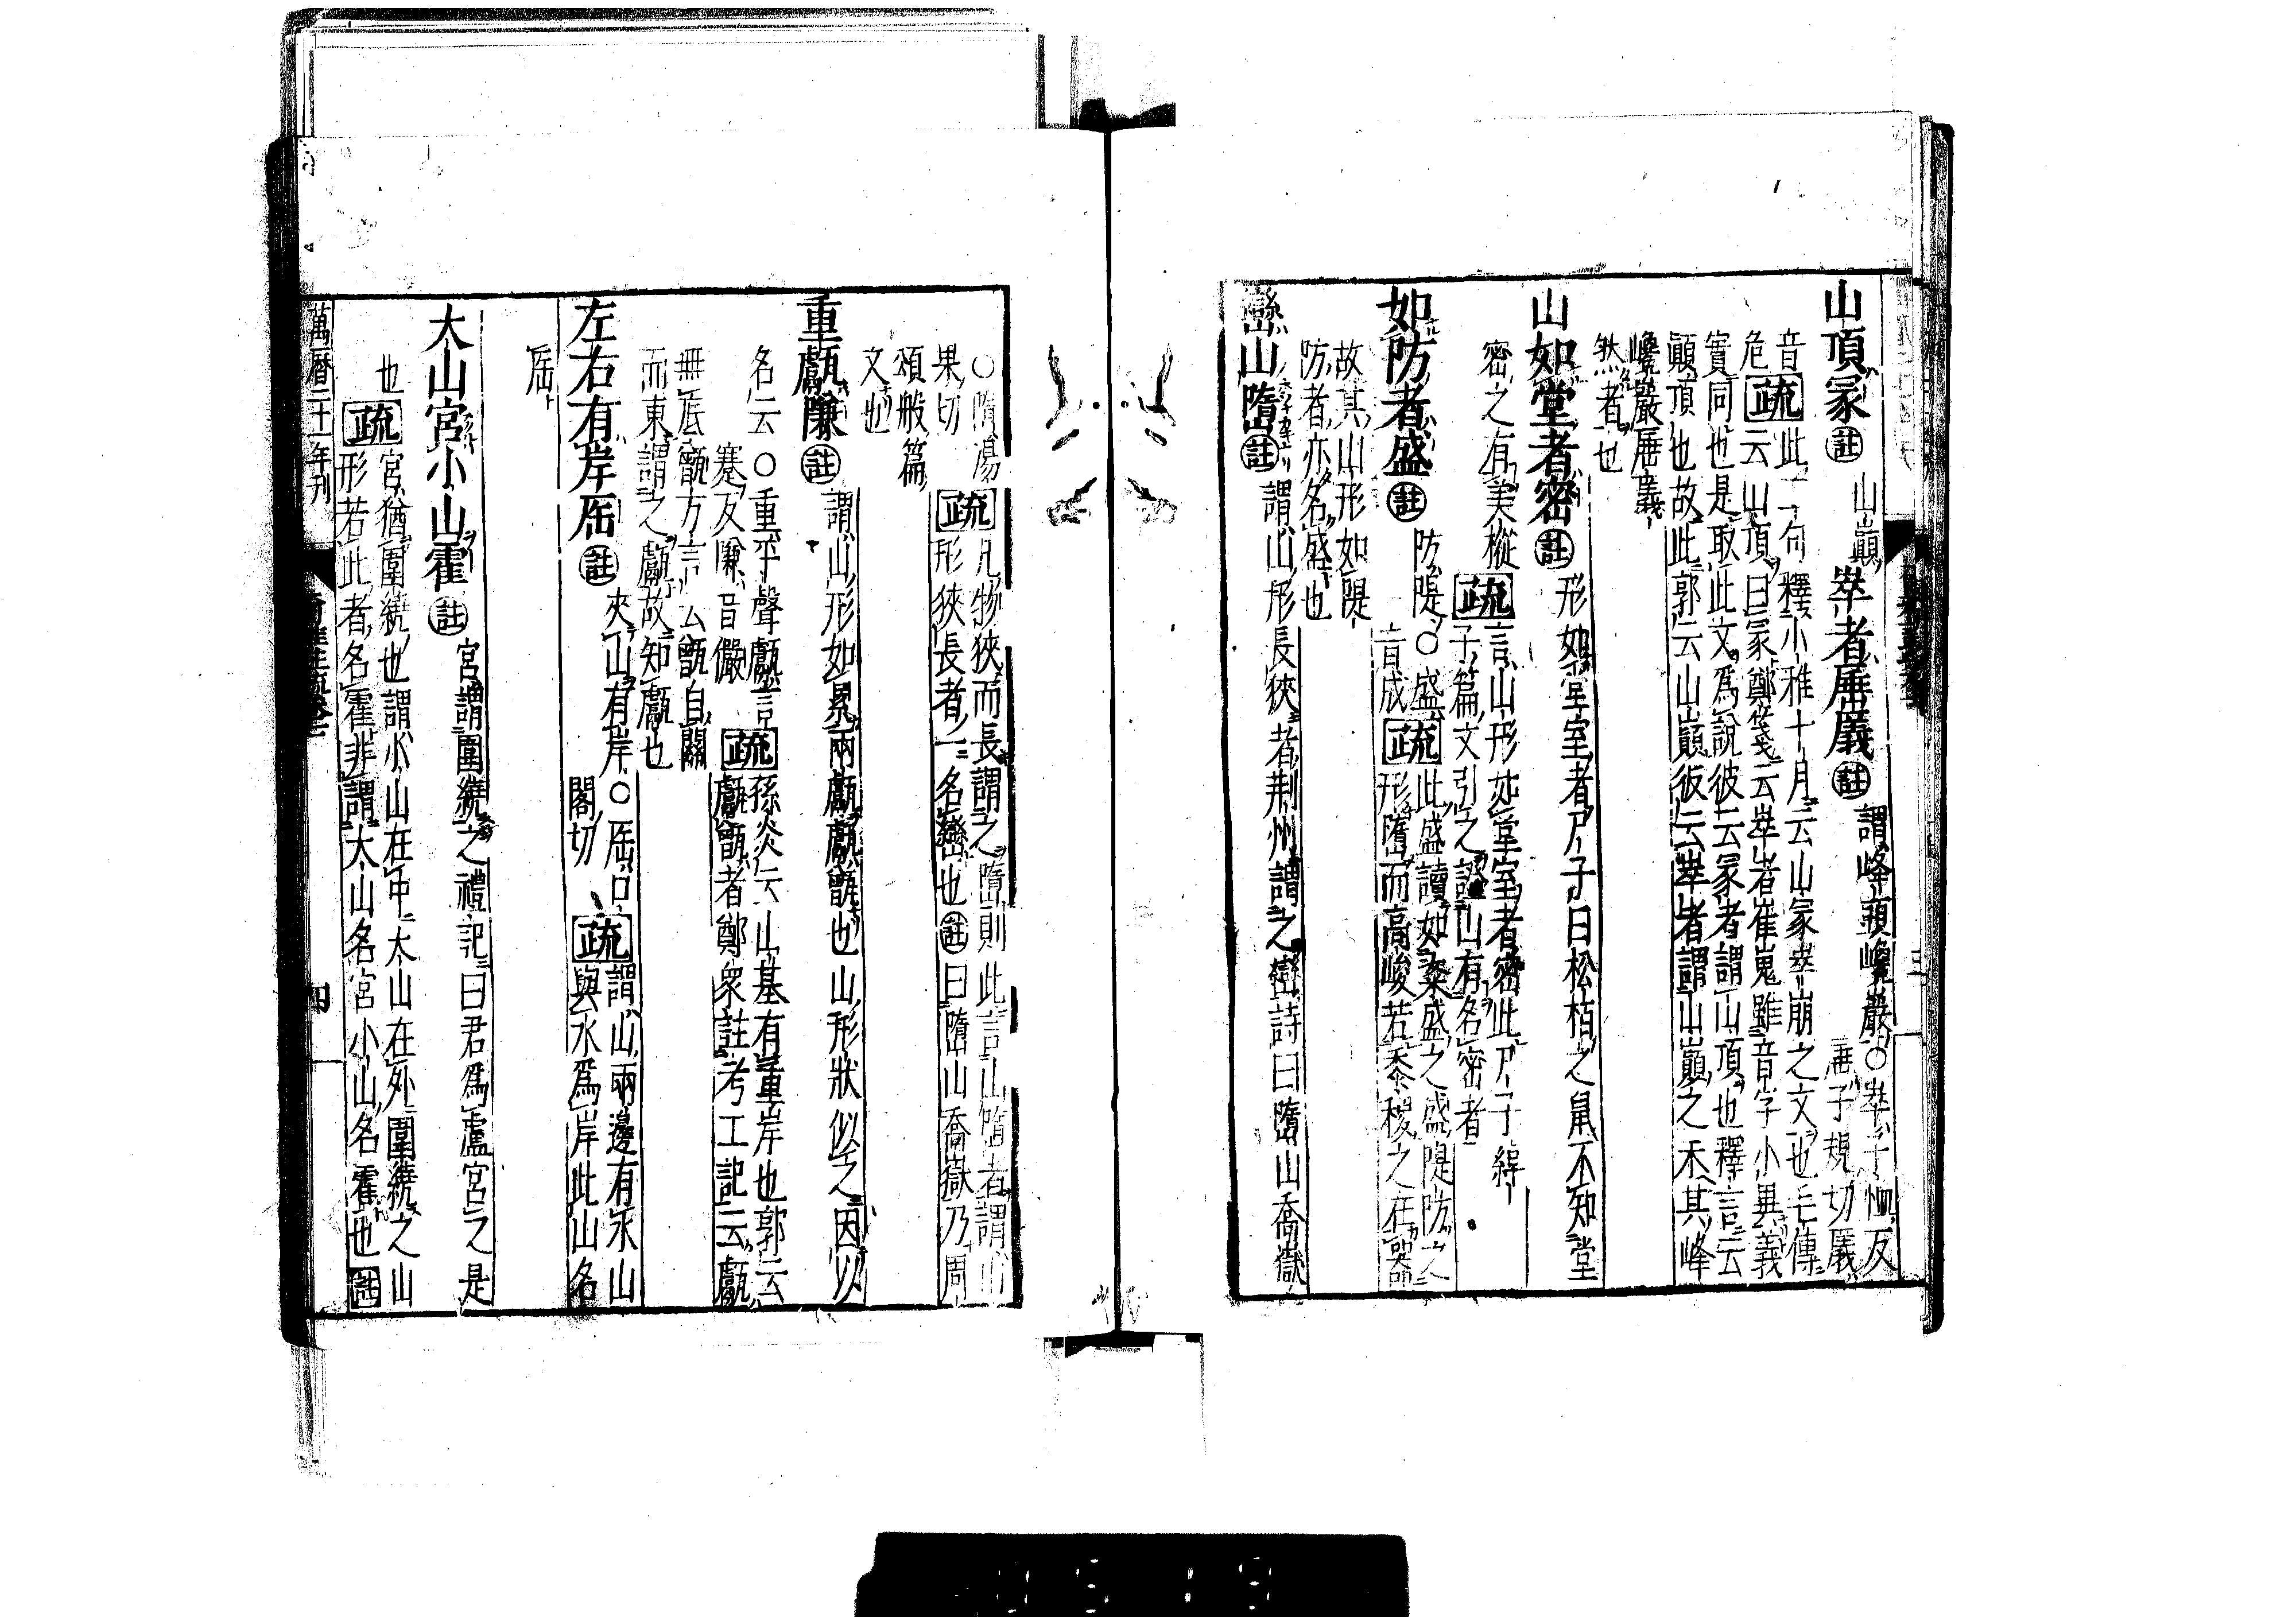 山頂冢註山巔崒者厜㕒註謂峰頭巉巖○崒子恤反
厜子規切㕒
音
危疏此一句釋小雅十月云山冢崒崩之文也毛傳
云山頂曰冢鄭箋云崒者崔嵬雖音字小異義
實同也是取此文爲說彼云冢者謂山頂也釋言云
顚頂也故此郭云山巔彼云崒者謂山巔之末其峰
巉巖厜㕒
然者也
山如堂者密註形如堂室者尸子曰松栢之鼠不知堂
密之有美樅疏言山形如堂室者密此尸子綽
子篇文引之證山有名密者
如防者盛註防隄○盛
音成疏此盛讀如粢盛之盛隄防之
形隋而高峻若黍稷之在器
故其山形如隄
防者亦名盛也
巒山隋註謂山形長狹者荆州謂之巒詩曰隋山喬嶽
○隋湯
果切疏凡物狹而長謂之隋則此言山隋者謂山
形狹長者一名巒也註曰隋山喬嶽乃周
頌般篇
文也
重甗隒註謂山形如累兩甗甗甑也山形狀似之因以
名云○重平聲甗言
蹇反隒音儼疏孫炎云山基有重岸也郭云甗
甗甑者鄭衆註考工記云甗
無底甑方言云甑自關
而東謂之甗故知甗也
左右有岸厒註夾山有岸○厒口
閣切疏謂山兩邊有水山
與水爲岸此山名
厒
大山宮小山霍註宮謂圍繞之禮記曰君爲廬宮之是
也疏宮猶圍繞也謂小山在中大山在外圍繞之山
形若此者名霍非謂大山名宮小山名霍也註
萬曆二十一年刊
四